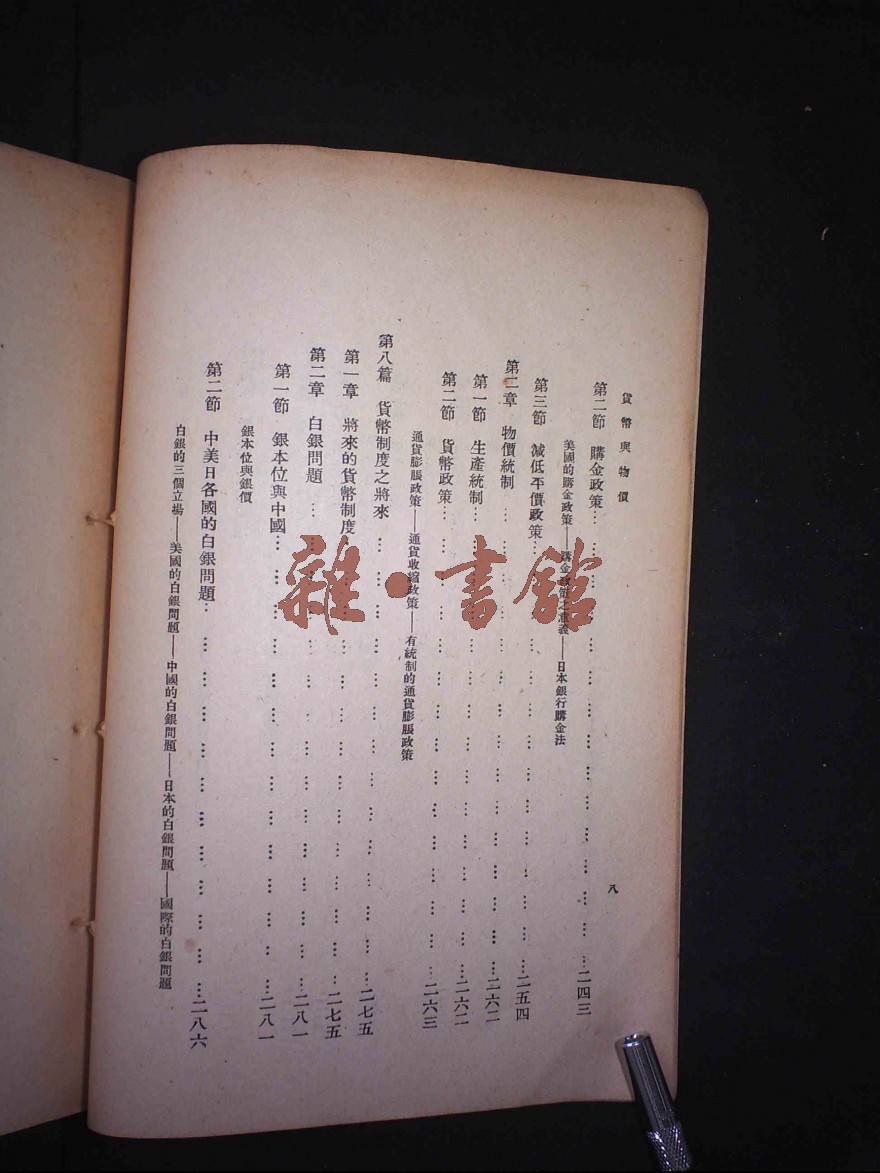 貨幣與物價
八
第二節 購金政策……二四三
美國的購金政策——購金政策之意義——日本銀行購金法
第三節 減低平價政策……二五四
第二章 物價統制……二六二
第一節 生產統制……二六二
第二節 貨幣政策……二六三
通貨膨脹政策——通貨收縮政策——有統制的通貨膨脹政策
第八篇 貨幣制度之將來……二七五
第一章 將來的貨幣制度……二七五
第二章 白銀問題……二八一
第一節 銀本位與中國……二八一
銀本位與銀價
第二節 中美日各國的白銀問題……二八六
白銀的三個立場——美國的白銀問題——中國的白銀問題——日本的白銀問題——國際的白銀問題
雜·書館